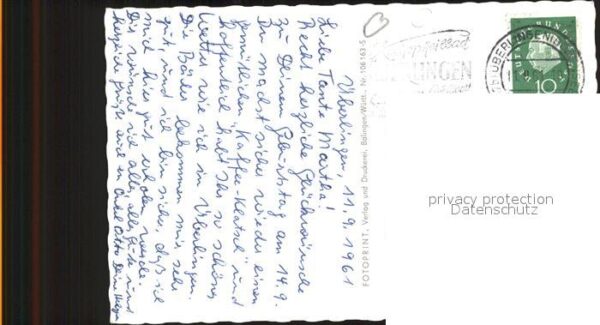 Überlingen, 11.9.1961
Liebe Tante Martha!
Recht herzliche Glückwünsche
zu Deinem Geburtstag am 14.9.
Du machst sicher wieder einen
gemütlichen "Kaffee-Klatsch" und
hoffentlich habt Ihr so schönes
Wetter wie ich in Überlingen.
Die Bäder bekommen mir sehr
gut, und ich bin sicher, daß ich
mich hier gut erholen werde.
Dir wünsch ich alles, alles Gute und
herzliche Grüße auch an Onkel Otto Deine
FOTOPRINT, Verlag und Druckerei, Balingen/Württ. Nr. 106 163-5
Kneippheilbad
ÜBERLINGEN
ÜBERLINGEN
BUNDESPOST
10
privacy protection
Datenschutz